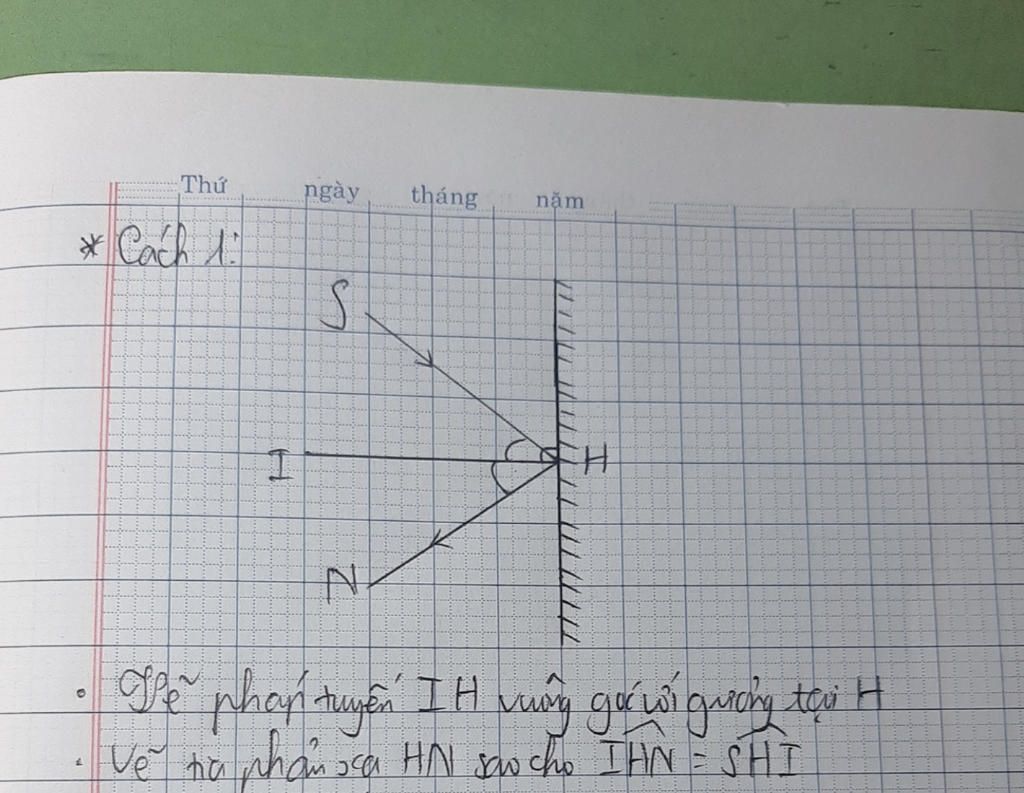 Thứ ngày tháng năm
* Cách 1:
S
I H
N
• Vẽ pháp tuyến IH vuông góc với gương tại H
• Vẽ tia phản xạ HN sao cho IHN = SHI